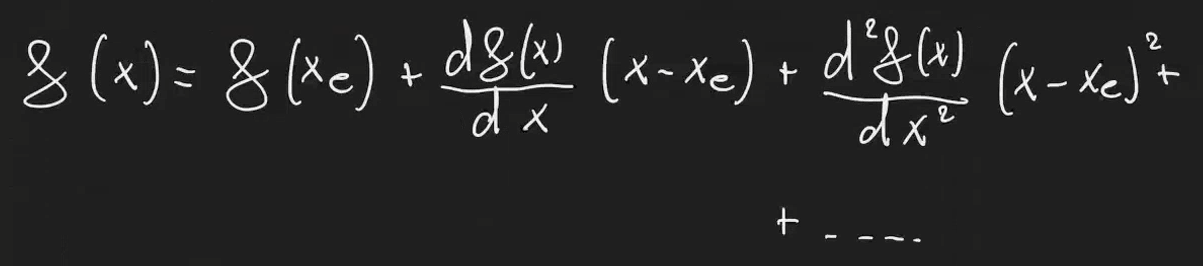 f(x) = f(x_e) + \frac{df(x)}{dx} (x - x_e) + \frac{d^2 f(x)}{dx^2} (x - x_e)^2 +
+ - - - - .